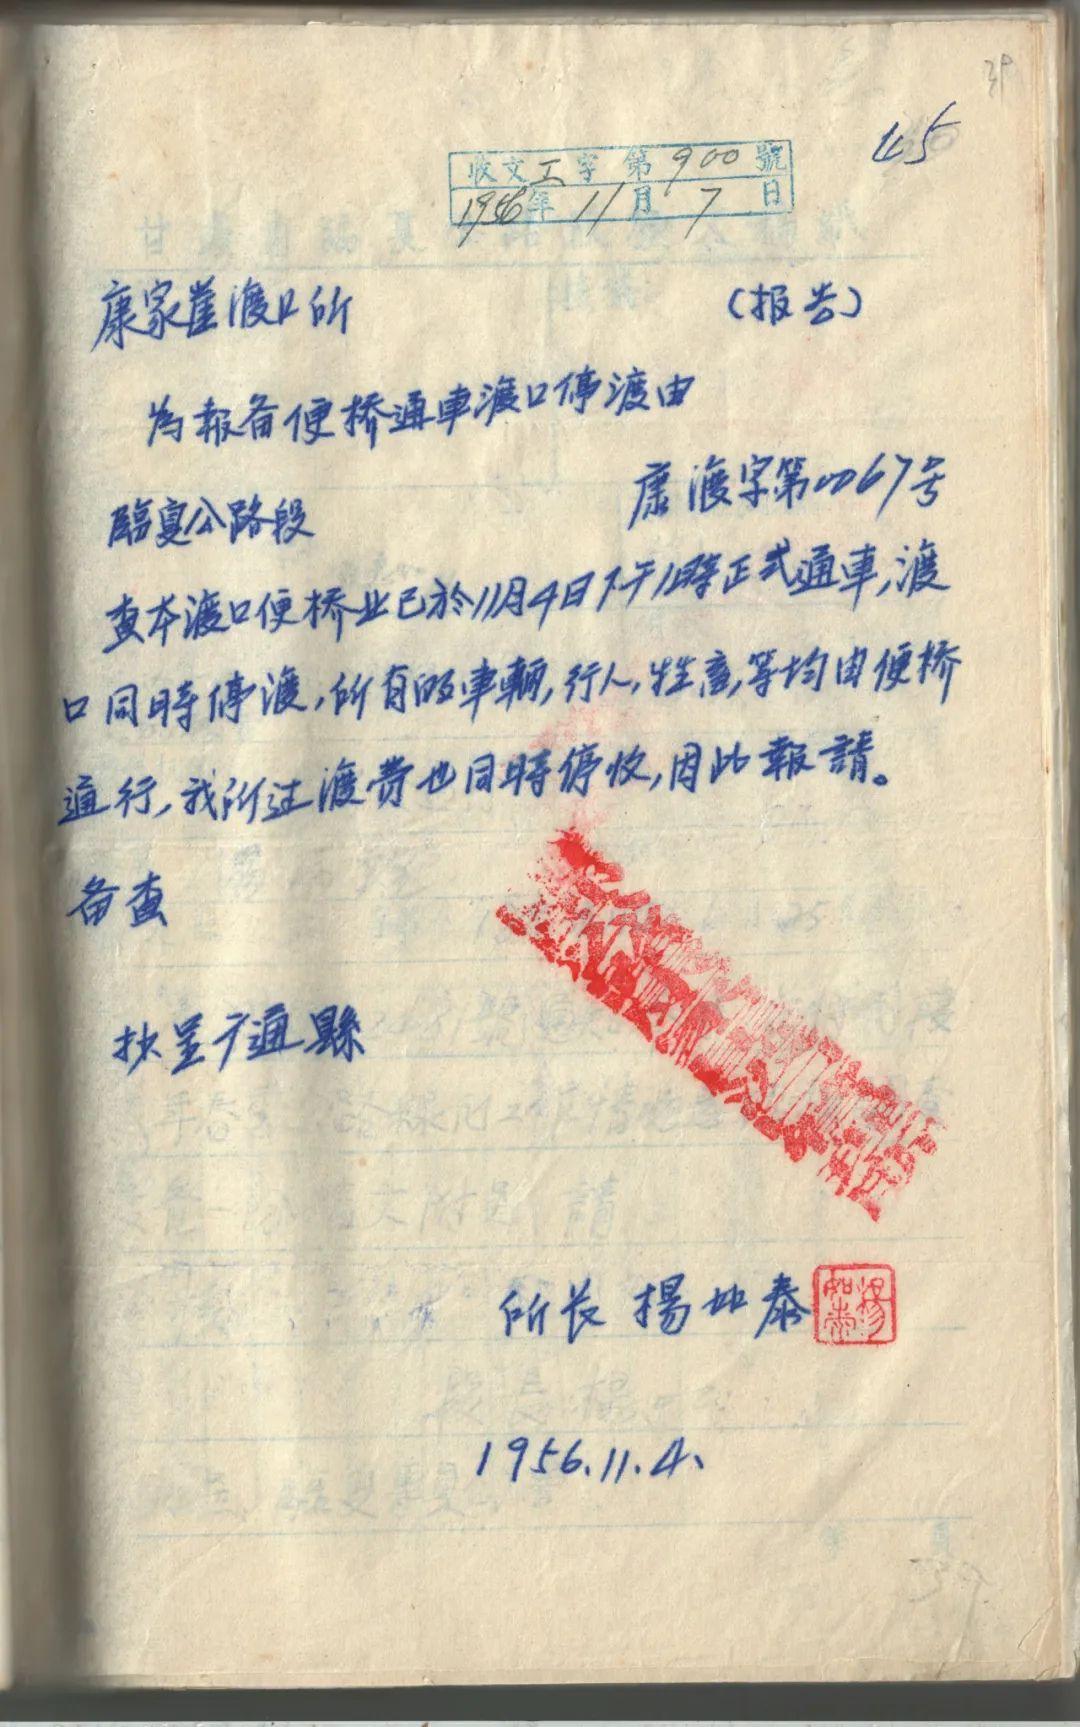 39
45
收文工字第900號
1956年11月7日
康家崖渡口所 （报告）
为報备便桥通車渡口停渡由
康渡字第0067号
臨夏公路段
查本渡口便桥业已於11月4日下午1時正式通車,渡
口同時停渡,所有的車輛,行人,牲畜,等均由便桥
通行,我所过渡费也同時停收,因此報請。
备查
抄呈广通縣
所长 楊如泰
楊如泰
1956.11.4、